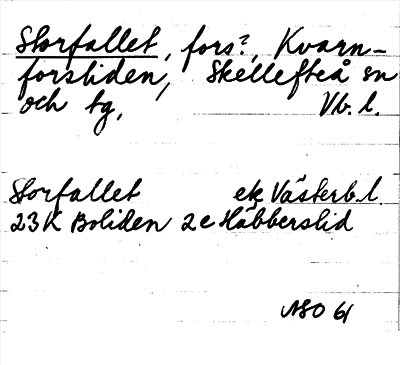 Storfallet, fors?, Kvarn-
forsliden, Skellefteå sn
och tg, Vb. l.
Storfallet ek Västerb. l.
23K Boliden 2c Häbberslid
NSO 61